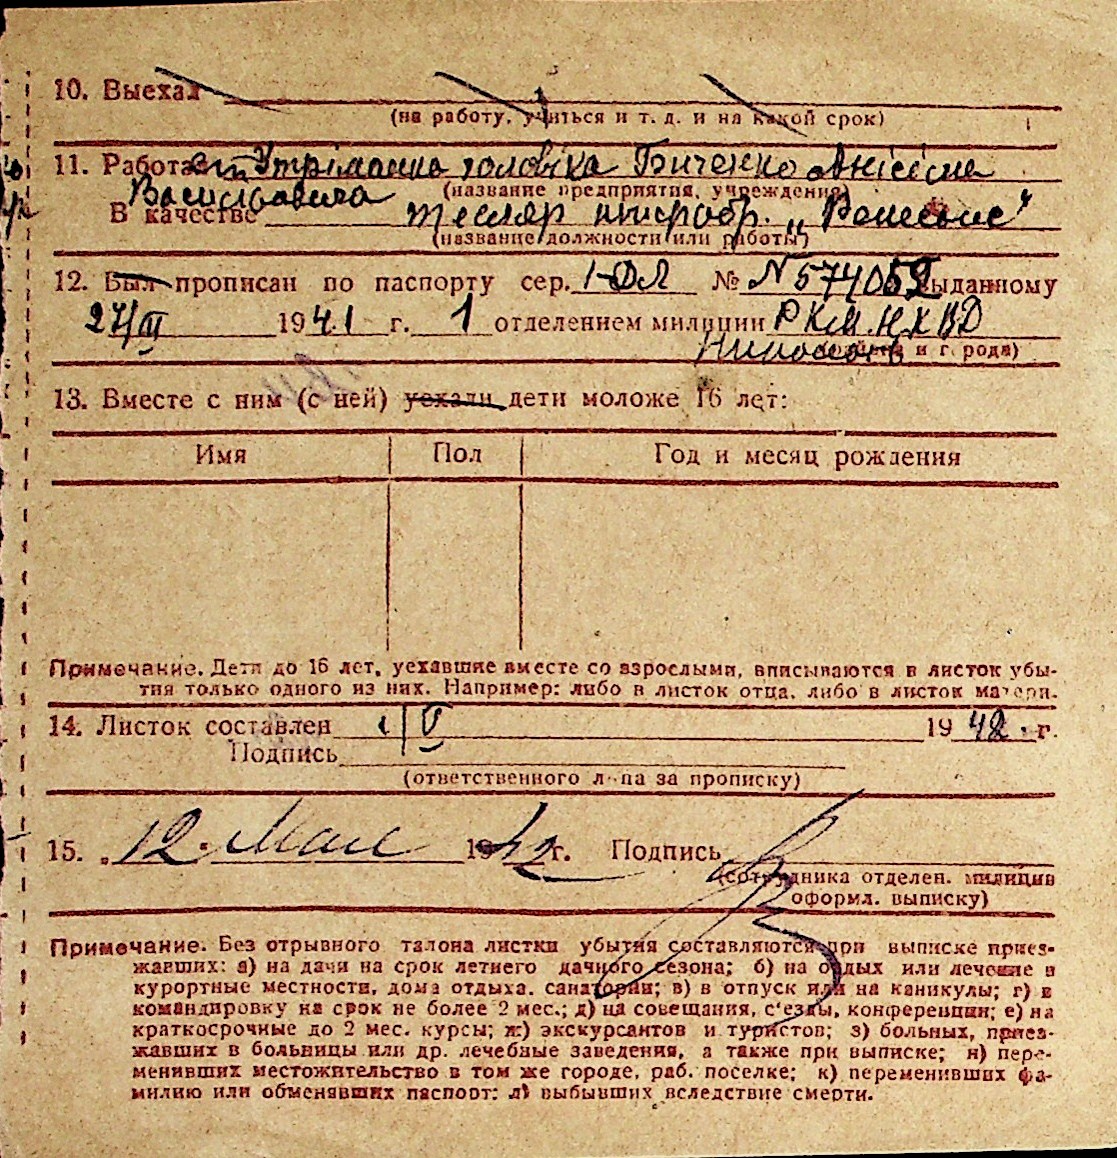 10. Выехал
(на работу, учиться и т. д. и на какой срок)
11. Работа Утріманна головіка Биченко Анісіма
Васильовича
(название предприятия, учреждения)
В качестве тесляр
(название должности или работы)
12. Был прописан по паспорту сер. І-ОЛ № N 574052 выданному
27/III 1941 г. 1 отделением милиции РКМ. НКВД
и г. рода)
13. Вместе с ним (с ней) уехали дети моложе 16 лет:
Имя Пол Год и месяц рождения
Примечание. Дети до 16 лет, уехавшие вместе со взрослыми, вписываются в листок убы-
тия только одного из них. Например: либо в листок отца, либо в листок матери.
14. Листок составлен 1/V 1942. г.
Подпись
(ответственного лица за прописку)
15. „12" Мая 1942 г. Подпись
(сотрудника отделен. милиции
оформл. выписку)
Примечание. Без отрывного талона листки убытия составляются при выписке приез-
жавших: а) на дачи на срок летнего дачного сезона; б) на отдых или лечение в
курортные местности, дома отдыха, санатории; в) в отпуск или на каникулы; г) в
командировку на срок не более 2 мес.; д) на совещания, с'езды, конференции; е) на
краткосрочные до 2 мес. курсы; ж) экскурсантов и туристов; з) больных, приез-
жавших в больницы или др. лечебные заведения, а также при выписке; и) пере-
менивших местожительство в том же городе, раб. поселке; к) переменивших фа-
милию или обменявших паспорт; л) выбывших вследствие смерти.